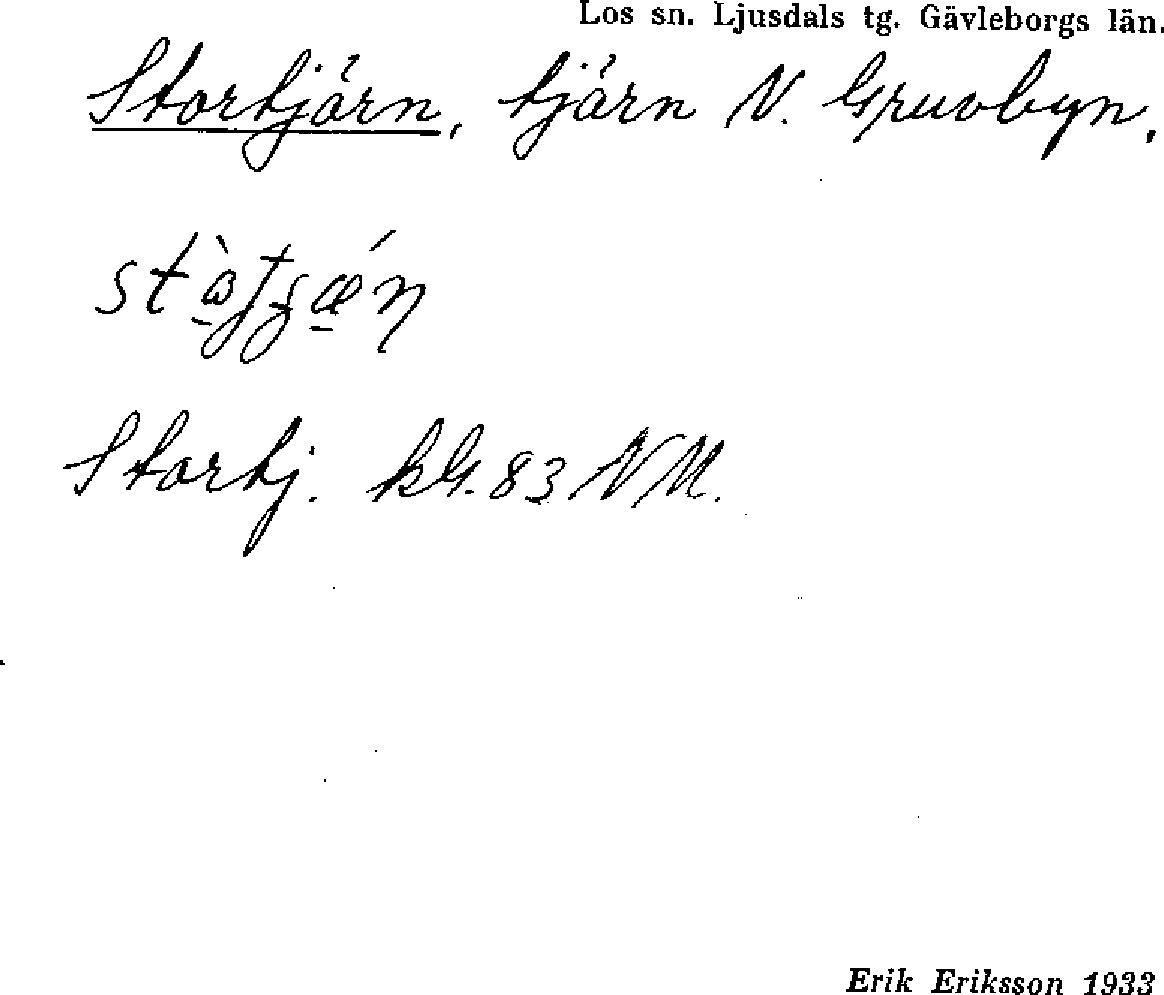 Los sn. Ljusdals tg. Gävleborgs län.
Stortjärn, tjärn N. Gruvbyn,
Stortj. kbl. 83 NM.
Erik Eriksson 1933